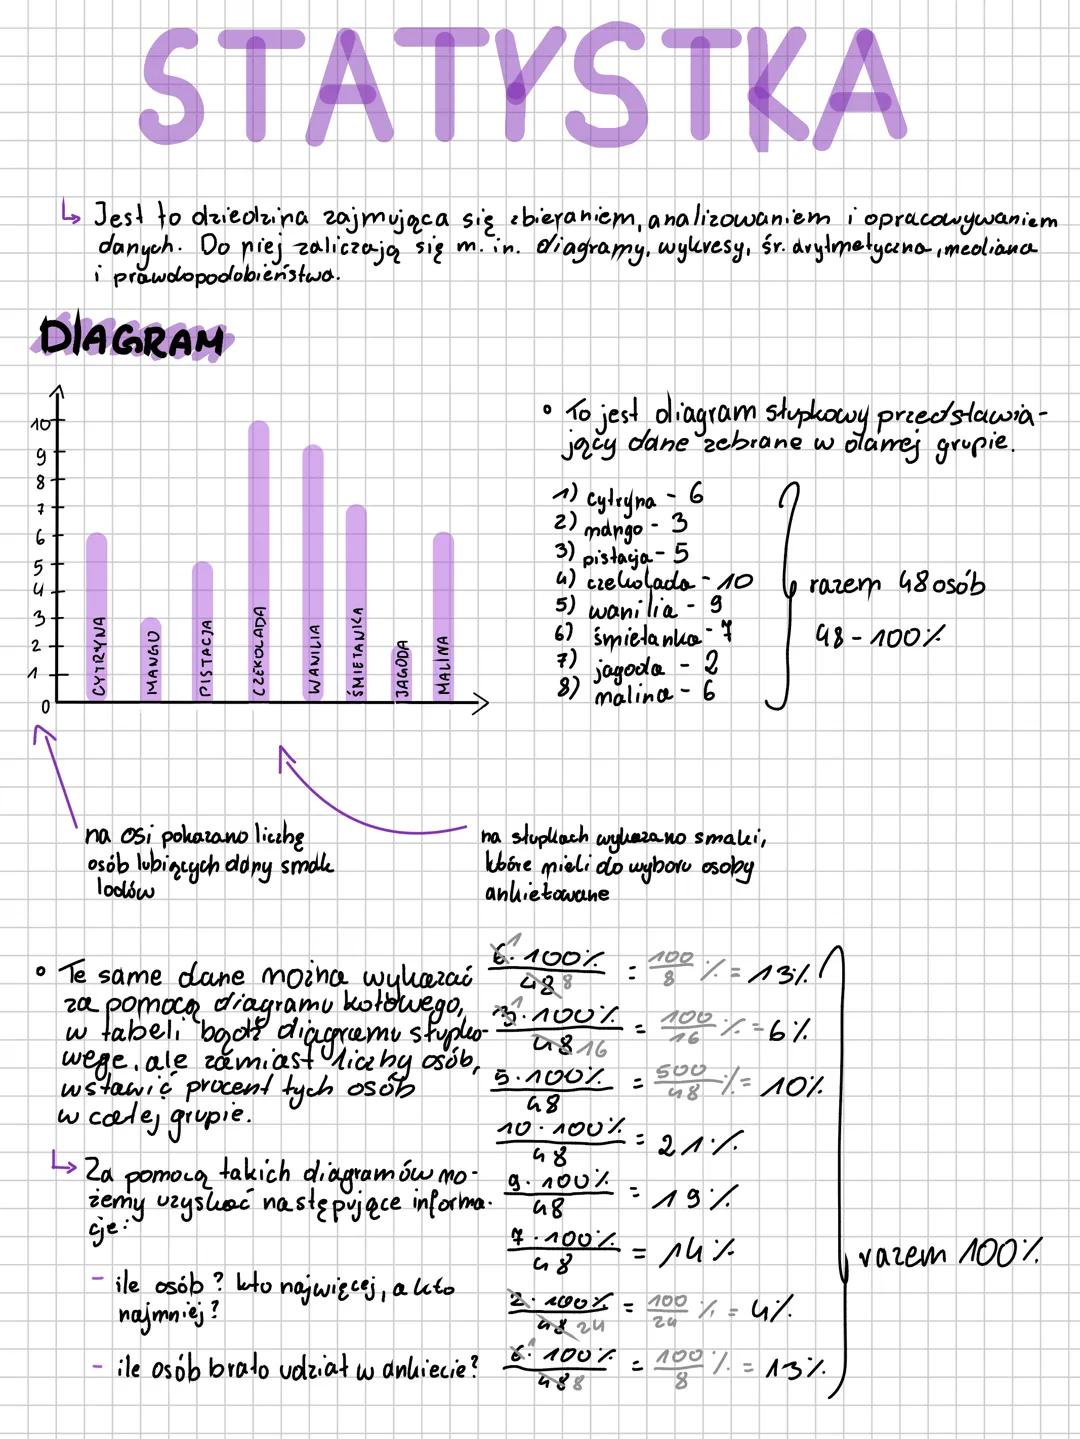 STATYSTKA
↳ Jest to dziedzina zajmująca się zbieraniem, analizowaniem i opracowywaniem
danych. Do niej zaliczają się m. in. diagramy, wykresy, śr. arytmetyczna, mediana
i prawdopodobieństwa.
DIAGRAM
10
9
8
7
6
5
4
3
2
1
0
CYTRYNA
MANGO
PISTACJA
CZEKOLADA
WANILIA
ŚMIETANKA
JAGODA
MALINA
° To jest diagram słupkowy przedstawia-
jący dane zebrane w danej grupie.
1) cytryna - 6
2) mango - 3
3) pistacja - 5
4) czekolada - 10
5) wanilia - 9
6) śmietanka - 7
7) jagoda - 2
8) malina - 6
razem 48 osób
48 - 100%
na osi pokazano liczbę
osób lubiących dany smak
lodów
na słupkach wykazano smaki,
które mieli do wyboru osoby
ankietowane
° Te same dane można wykazać
za pomocą diagramu kołowego,
w tabeli bądź diagramu słupko-
wego, ale zamiast liczby osób,
wstawić procent tych osób
w całej grupie.
↳ Za pomocą takich diagramów mo-
żemy uzyskać następujące informa-
cje:
- ile osób? kto najwięcej, a kto
najmniej?
- ile osób brało udział w ankiecie?
6 · 100% / 48 = 100/8 % = 13%
1 8
3 · 100% / 48 = 100/16 % = 6%
1 16
5 · 100% / 48 = 500/48 % = 10%
10 · 100% / 48 = 21%
9 · 100% / 48 = 19%
7 · 100% / 48 = 14%
2 · 100% / 48 = 100/24 % = 4%
24
6 · 100% / 48 = 100/8 % = 13%
1 8
razem 100%